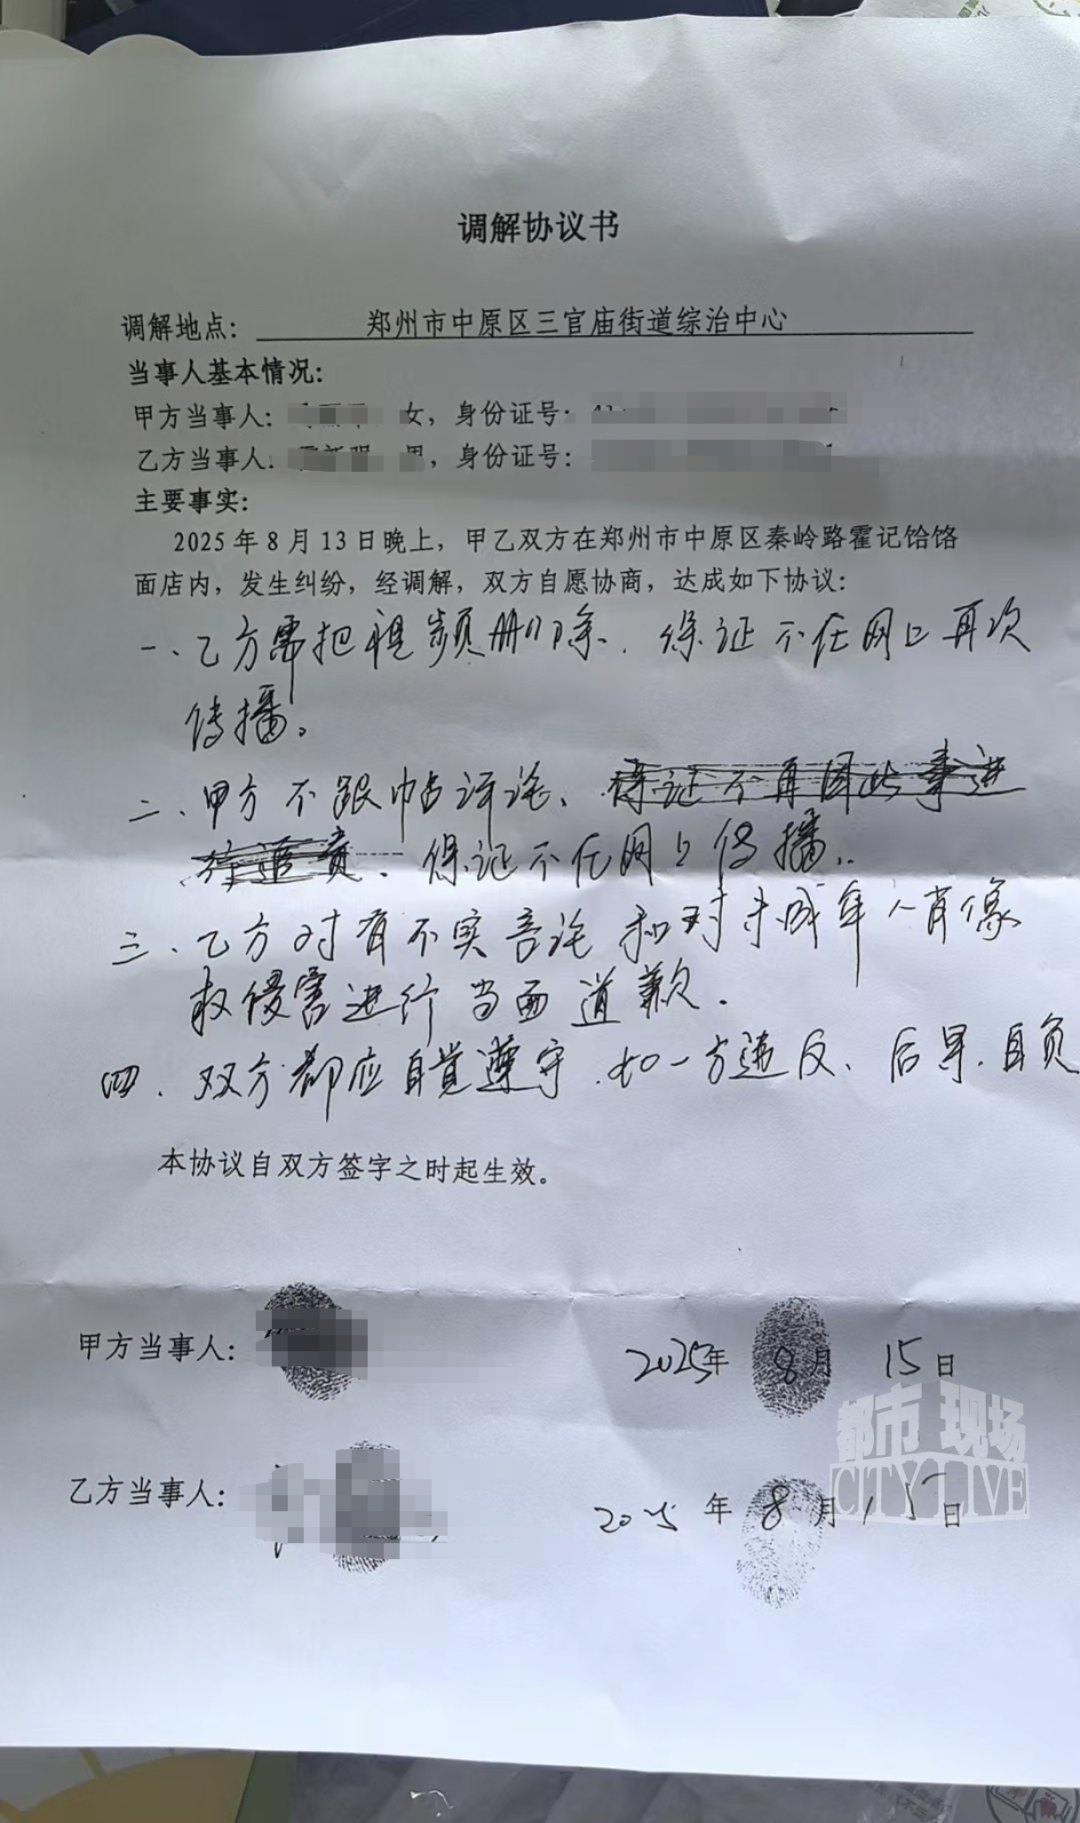 调解协议书
调解地点： 郑州市中原区三官庙街道综治中心
当事人基本情况：
甲方当事人： 女，身份证号：
乙方当事人： 男，身份证号：
主要事实：
2025年8月13日晚上，甲乙双方在郑州市中原区秦岭路霍记饸饹
面店内，发生纠纷，经调解，双方自愿协商，达成如下协议：
一、乙方需把视频删除．保证不在网上再次
传播。
二、甲方不跟帖评论、保证不再因此事进
行追责．保证不在网上传播．
三、乙方对有不实言论和对未成年人肖像
权侵害进行当面道歉．
四、双方都应自觉遵守．如一方违反、后果自负
本协议自双方签字之时起生效。
甲方当事人： 2025年8月15日
乙方当事人： 2025年8月15日
都市现场
CITY LIVE